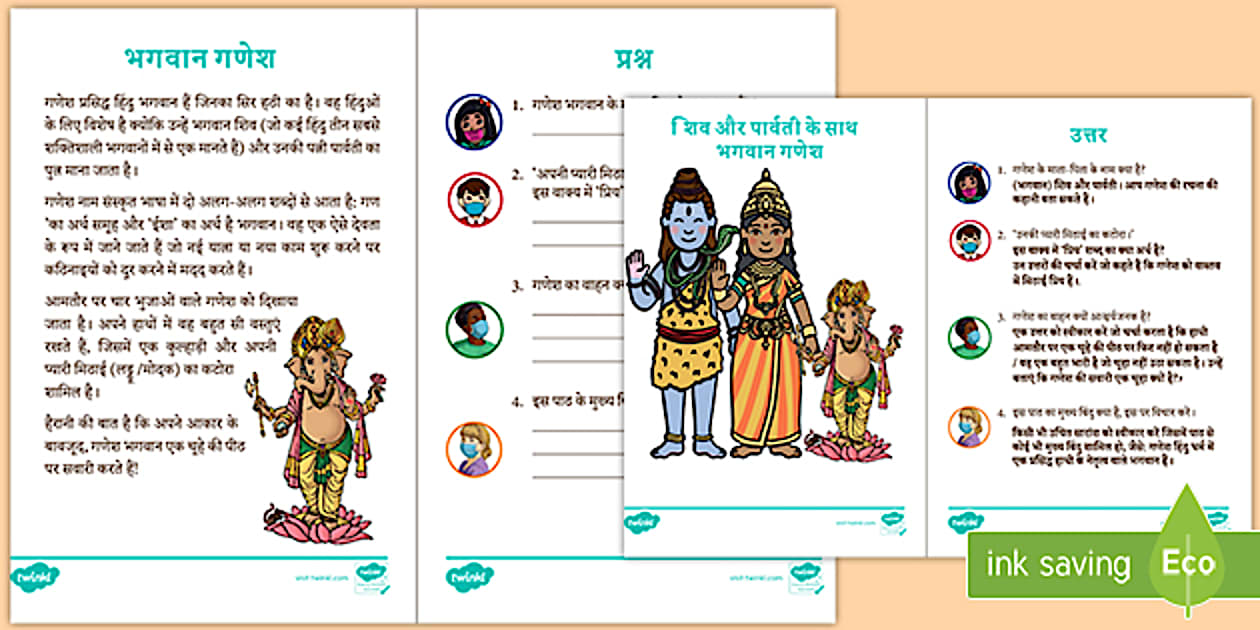 भगवान गणेश
गणेश प्रसिद्ध हिंदू भगवान हैं जिनका सिर हाथी का है। वह हिंदुओं
के लिए विशेष है क्योंकि उन्हें भगवान शिव (जो कई हिंदू तीन सबसे
शक्तिशाली भगवानों में से एक मानते हैं) और उनकी पत्नी पार्वती का
पुत्र माना जाता है।
गणेश नाम संस्कृत भाषा में दो अलग-अलग शब्दों से आता है; गण
'का अर्थ समूह और 'ईशा' का अर्थ है भगवान। वह एक ऐसे देवता
के रूप में जाने जाते हैं जो नई यात्रा या नया काम शुरू करने पर
कठिनाइयों को दूर करने में मदद करते हैं।
आमतौर पर चार भुजाओं वाले गणेश को दिखाया
जाता है। अपने हाथों में वह बहुत सी वस्तुएं
रखते हैं, जिसमें एक कुल्हाड़ी और अपनी
प्यारी मिठाई (लड्डू /मोदक) का कटोरा
शामिल है।
हैरानी की बात है कि अपने आकार के
बावजूद, गणेश भगवान एक चूहे की पीठ
पर सवारी करते हैं!
twinkl
visit twinkl.com
प्रश्न
1. गणेश भगवान के
2. 'अपनी प्यारी
इस वाक्य में 'प्रिय'
3. गणेश का वाहन
4. इस पाठ के मुख्य
twinkl
visit twinkl.com
शिव और पार्वती के साथ
भगवान गणेश
twinkl
visit twinkl.com
उत्तर
1. गणेश के माता-पिता के नाम क्या है?
(भगवान) शिव और पार्वती। आप गणेश की रचना की
कहानी बता सकते हैं।
2. "उनकी प्यारी मिठाई का कटोरा।"
इस वाक्य में 'प्रिय' शब्द का क्या अर्थ है?
उन उत्तरों की चर्चा करें जो कहते हैं कि गणेश को वास्तव
में मिठाई प्रिय हैं।
3. गणेश का वाहन क्यों आश्चर्यजनक है?
एक उत्तर को स्वीकार करें जो चर्चा करता है कि हाथी
आमतौर पर एक चूहे की पीठ पर फिट नहीं हो सकता है
/ वह एक बहुत भारी है जो चूहा नहीं उठा सकता है। उन्हें
बताएं कि गणेश की सवारी एक चूहा क्यों है?
4. इस पाठ का मुख्य बिंदु क्या है, इस पर विचार करें।
किसी भी उचित सारांश को स्वीकार करें जिसमें पाठ से
कोई भी मुख्य बिंदु शामिल हो, जैसे: गणेश हिंदू धर्म में
एक प्रसिद्ध हाथी के नेतृत्व वाले भगवान हैं।
twinkl
ink saving
Eco